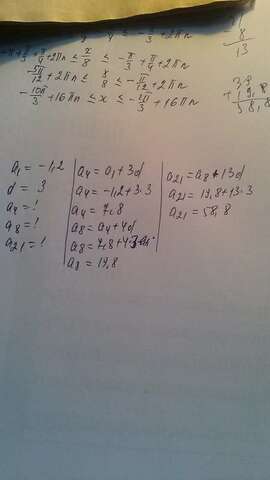 ≤ -π/3 + 2πn
-π + π/3 + π/4 + 2πn ≤ x/8 ≤ -π/3 + π/4 + 2πn
-5π/12 + 2πn ≤ x/8 ≤ -π/12 + 2πn
-10π/3 + 16πn ≤ x ≤ -2π/3 + 16πn
8
13
39
+ 19,8
58,8
a₁ = -1,2
d = 3
a₄ = ?
a₈ = ?
a₂₁ = ?
a₄ = a₁ + 3d
a₄ = -1,2 + 3·3
a₄ = 7,8
a₈ = a₄ + 4d
a₈ = 7,8 + 4·3
a₈ = 19,8
a₂₁ = a₈ + 13d
a₂₁ = 19,8 + 13·3
a₂₁ = 58,8